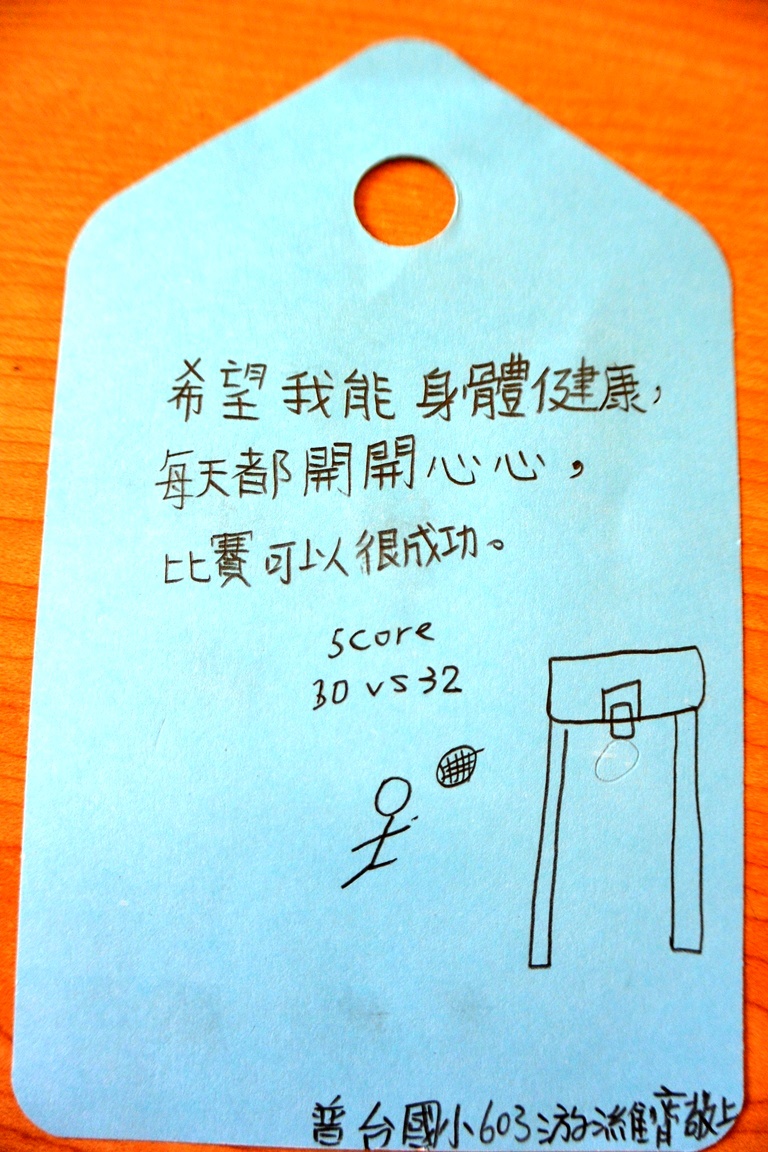 希望我能身體健康,
每天都開開心心,
比賽可以很成功。
score
30 vs 32
普台國小603游濰齊敬上